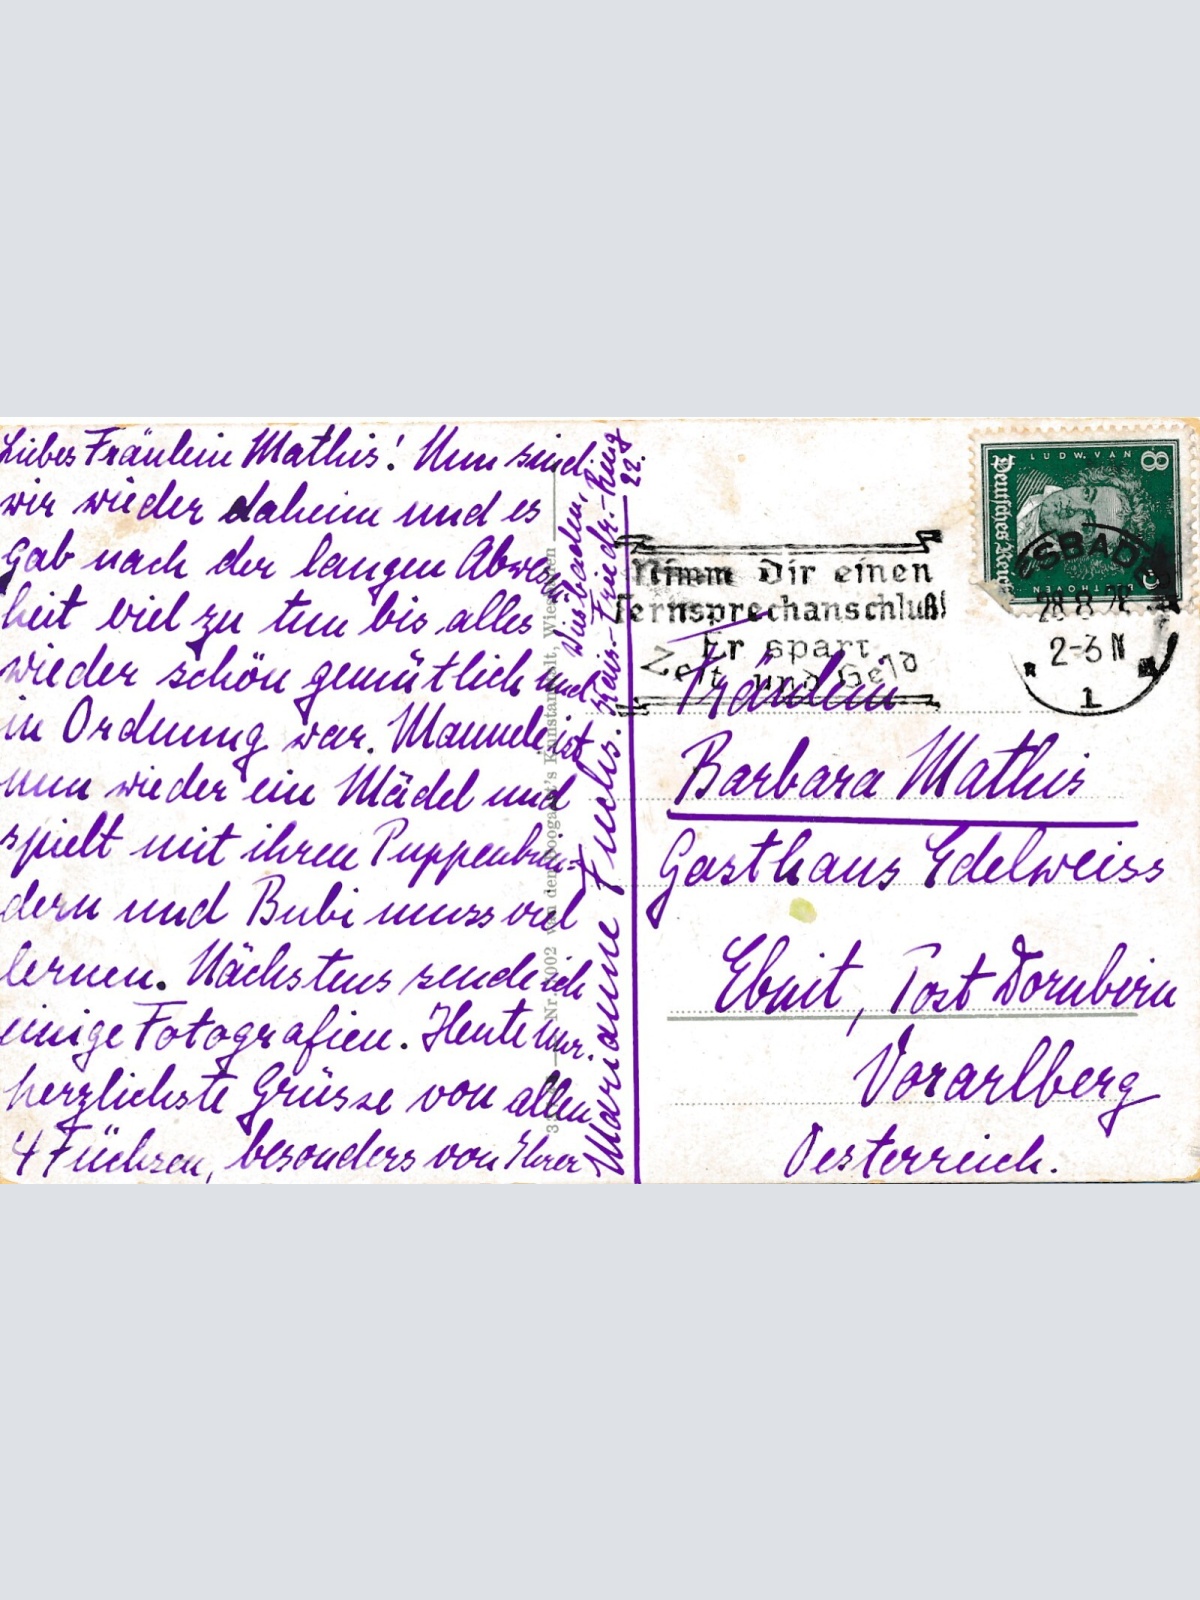 Liebes Fräulein Mathis! Nun sind
wir wieder daheim und es
gab nach der langen Abwesen
heit viel zu tun bis alles
wieder schön gemütlich und
in Ordnung war. Mannele ist
nun wieder ein Mädel und
spielt mit ihren Puppenkin-
dern und Bubi muss viel
lernen. Nächstens sende ich
einige Fotografien. Heute nur.
herzlichste Grüsse von allen
4 Füchsen, besonders von Ihrer
Marianne Fuchs.
Wiesbaden,
Kais.-Friedr.-Ring
22.
van den Hoogen's Kunstanstalt, Wiesbaden
Nimm Dir einen
Fernsprechanschluß!
Er spart
Zeit und Geld
LUDW. VAN
BEETHOVEN
8
Deutsches Reich
WIESBADEN
28.8.28
2-3 N
1
Fräulein
Barbara Mathis
Gasthaus Edelweiss
Ebnit, Post Dornbirn
Vorarlberg
Oesterreich.